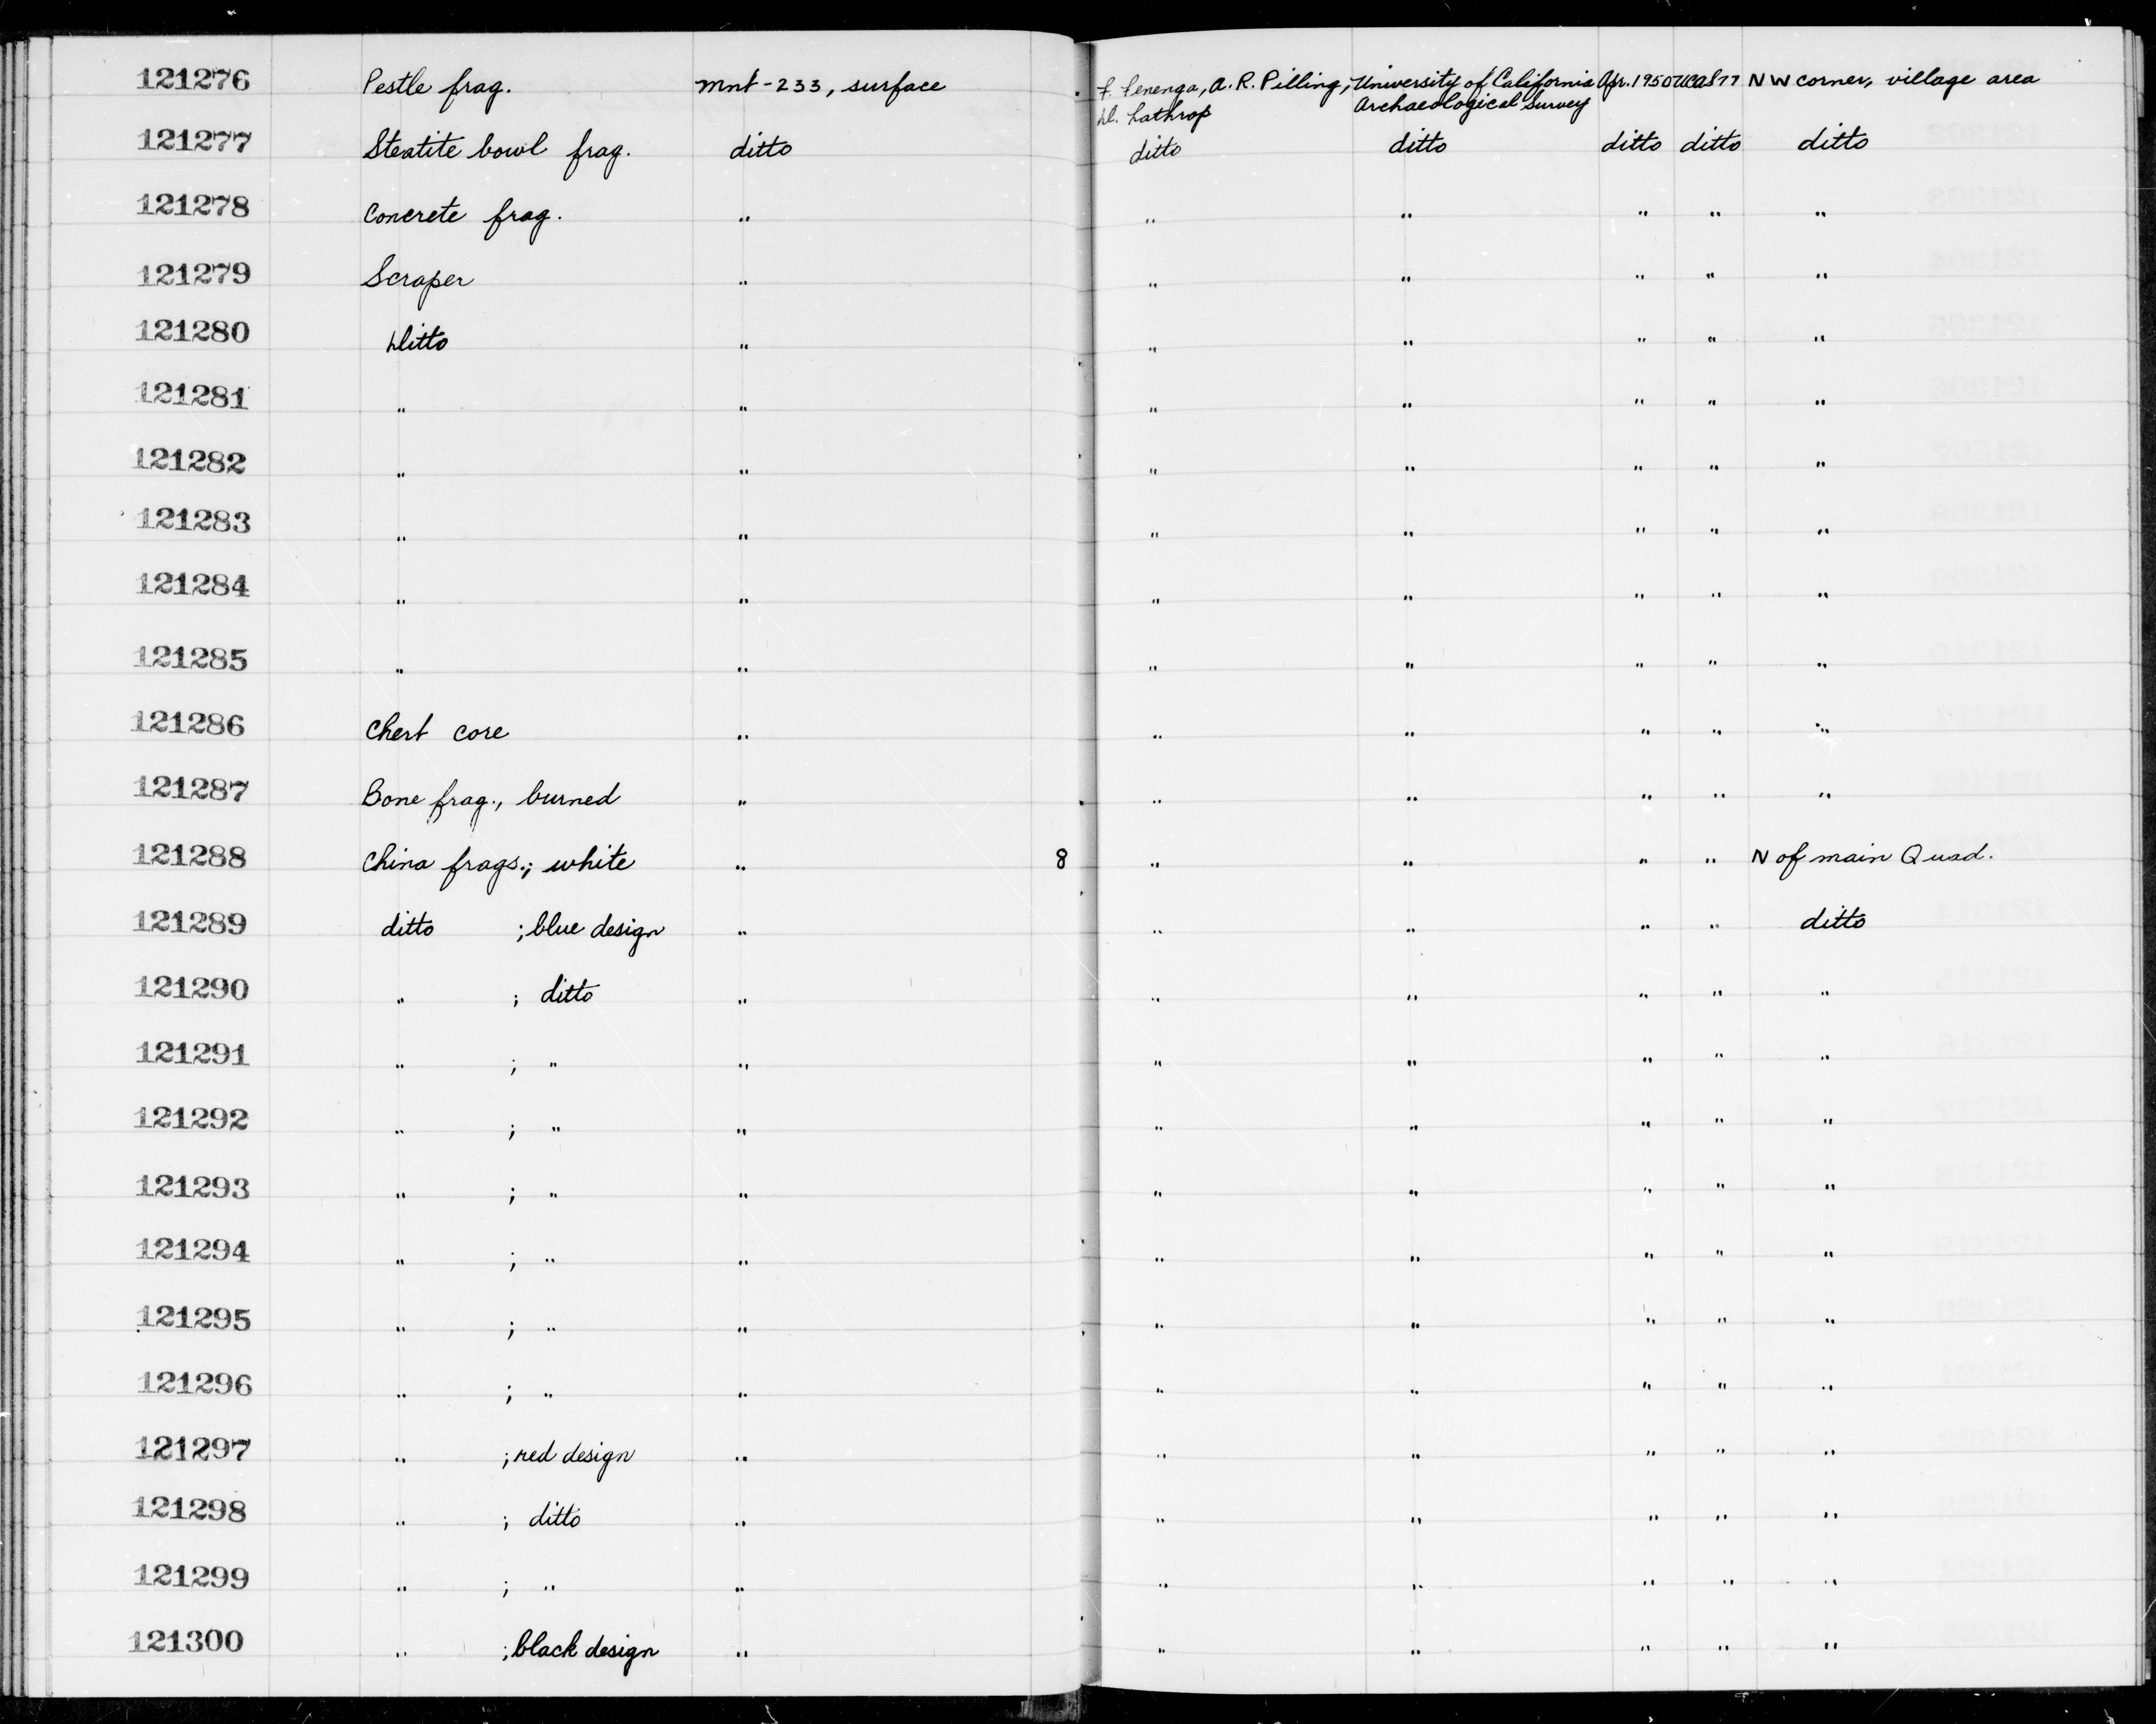 121276 Pestle frag. Mnt-233, surface F. Fenenga, A. R. Pilling, University of California Apr. 1950 NW corner, village area
D. Lathrop Archaeological Survey
121277 Steatite bowl frag. ditto ditto ditto ditto ditto ditto
121278 Concrete frag. " " " " " "
121279 Scraper " " " " " "
121280 Ditto " " " " " "
121281 " " " " " " "
121282 " " " " " " "
121283 " " " " " " "
121284 " " " " " " "
121285 " " " " " " "
121286 Chert core " " " " " "
121287 Bone frag., burned " " " " " "
121288 China frags.; white " 8 " " " " N of main Quad.
121289 ditto ; blue design " " " " " ditto
121290 " ; ditto " " " " " "
121291 " ; " " " " " " "
121292 " ; " " " " " " "
121293 " ; " " " " " " "
121294 " ; " " " " " " "
121295 " ; " " " " " " "
121296 " ; " " " " " " "
121297 " ; red design " " " " " "
121298 " ; ditto " " " " " "
121299 " ; " " " " " " "
121300 " ; black design " " " " " "